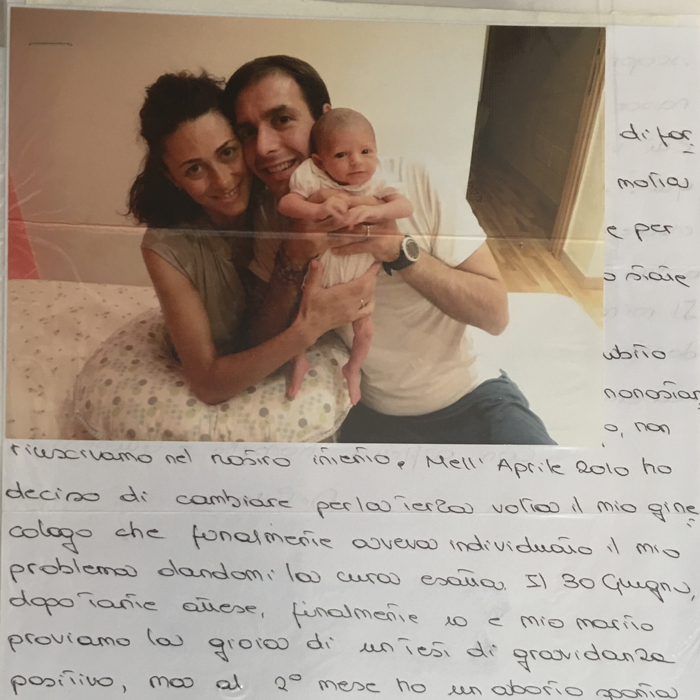 di far
e per
nonostan
o, non
riuscivamo nel nostro intento. Nell' Aprile 2010 ho
deciso di cambiare per la terza volta il mio gine
cologo che finalmente aveva individuato il mio
problema dandomi la cura esatta. Il 30 Giugno,
dopo tante attese, finalmente io e mio marito
proviamo la gioia di un test di gravidanza
positivo, ma al 2° mese ho un aborto sponta